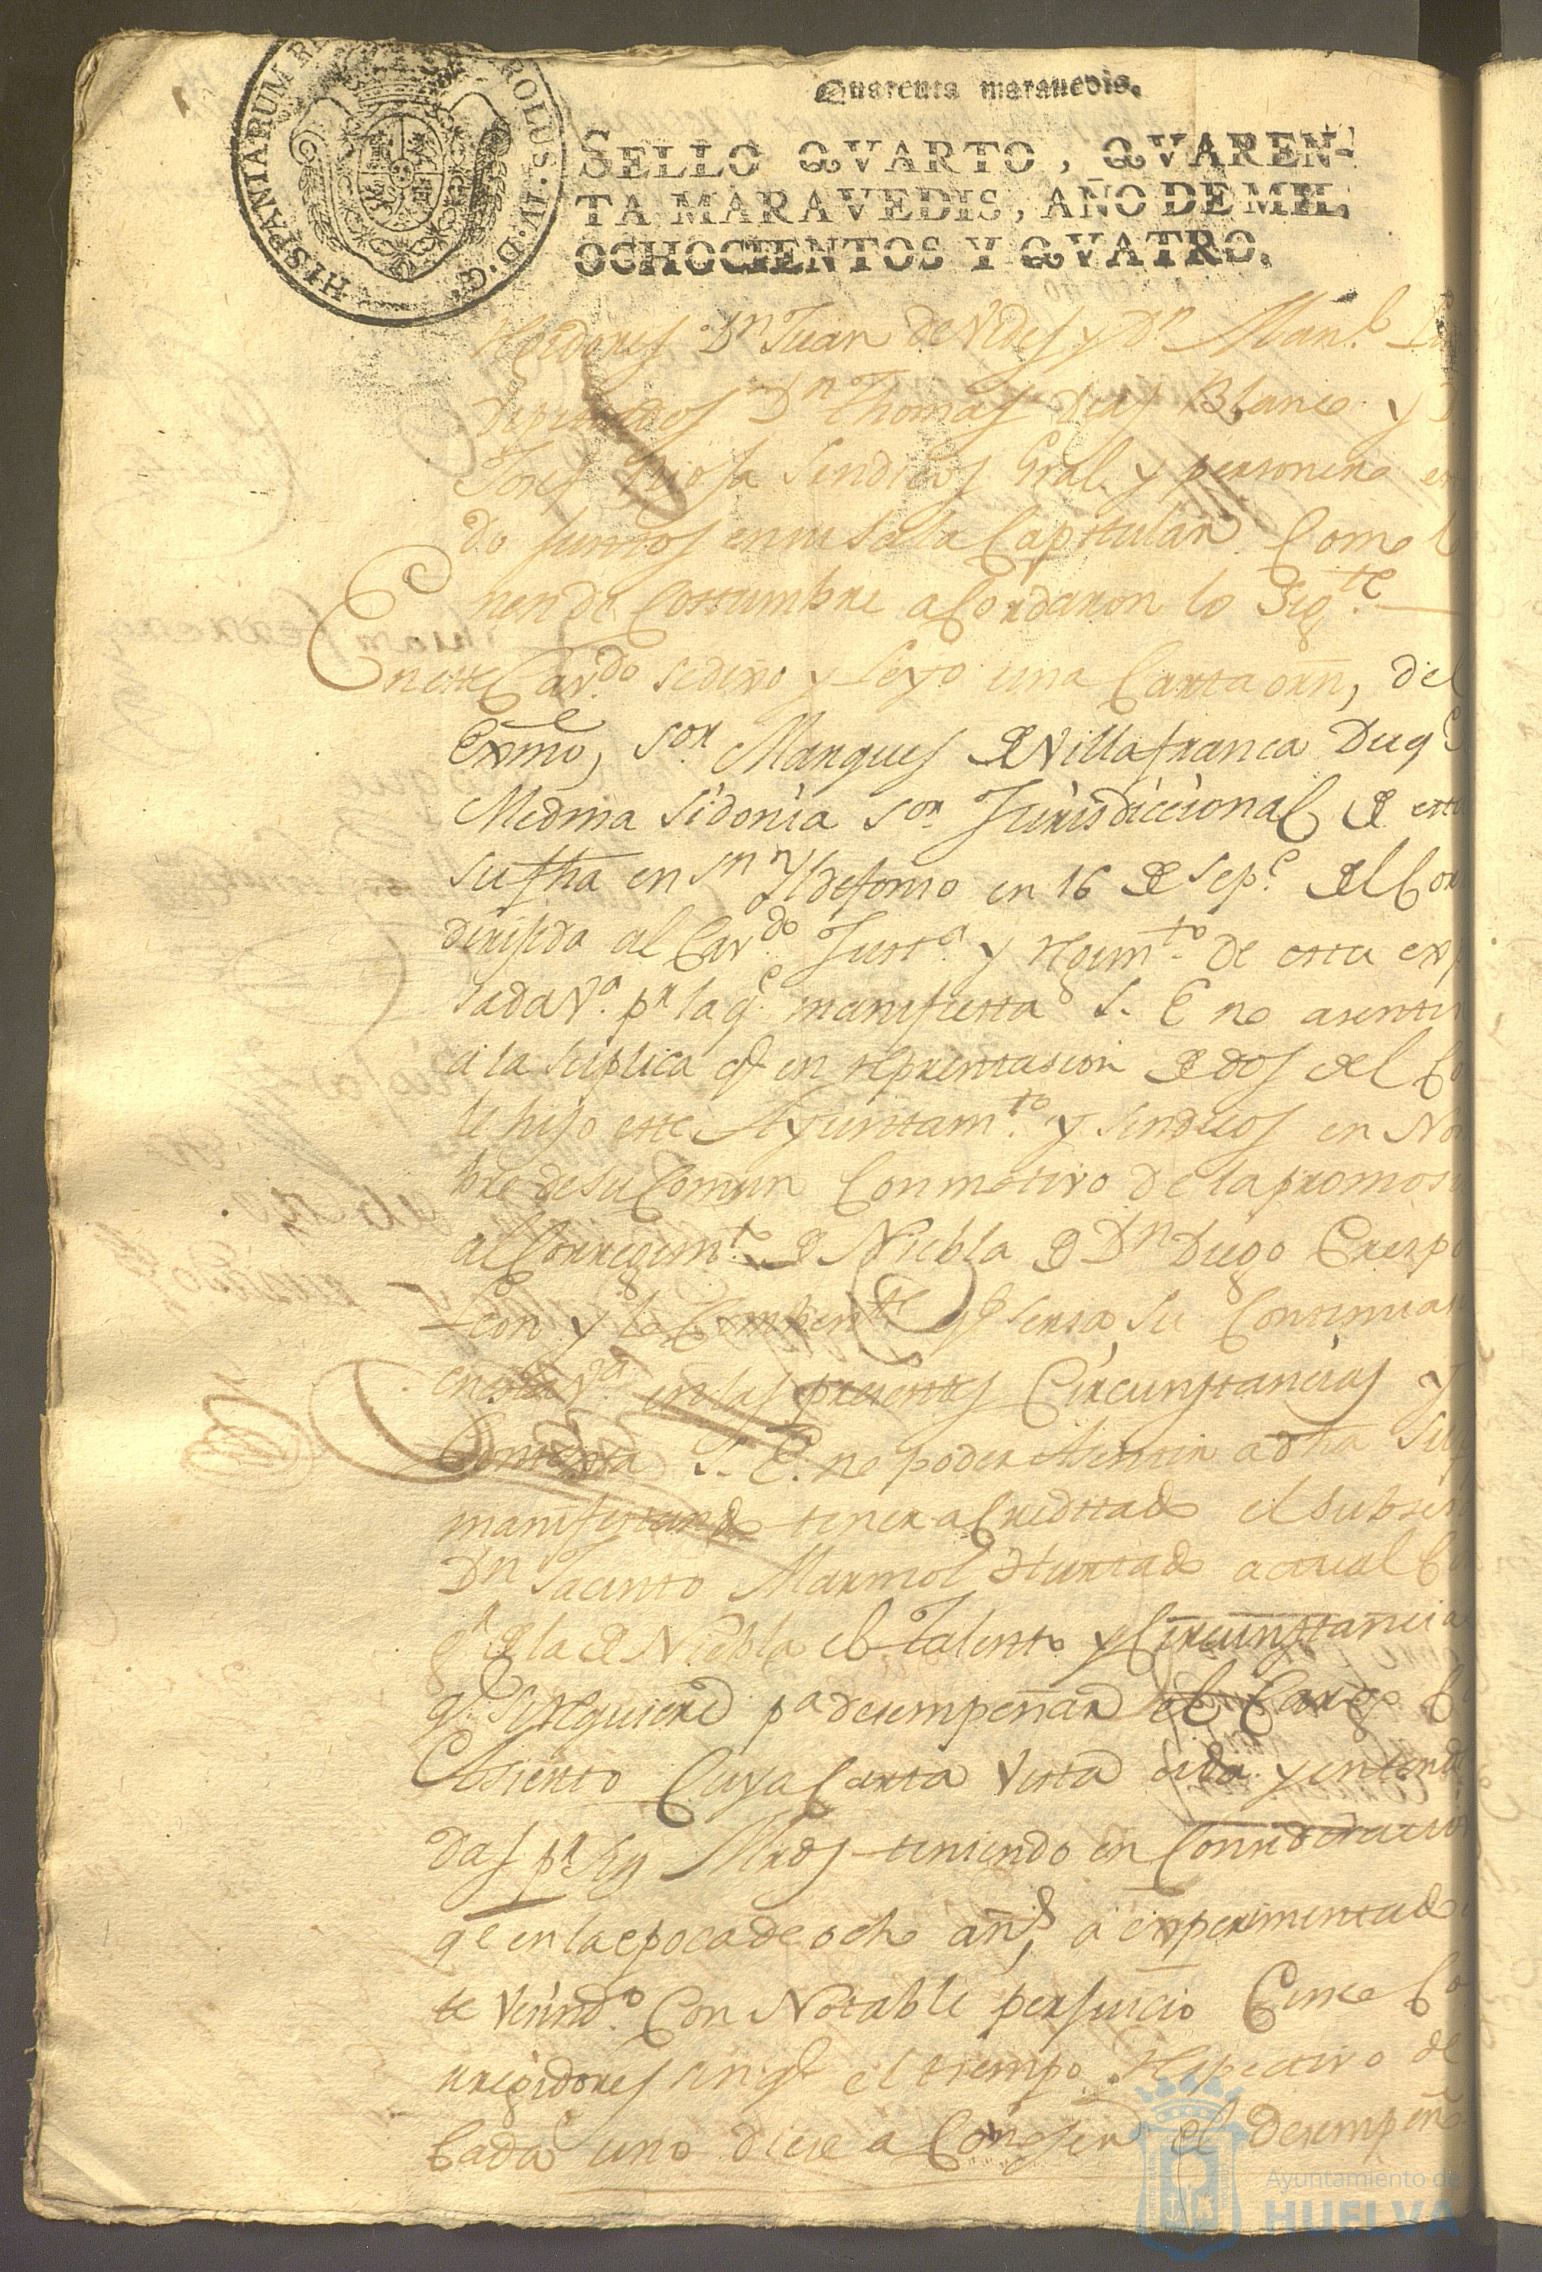 HISPANIARUM R
CAROLUS · IV · D · G ·
Quarenta marauedis.
SELLO QVARTO, QVAREN-
TA MARAVEDIS, AÑO DE MIL
OCHOCIENTOS Y QVATRO.
Rexidores Dn Juan de Vides y Dn Manl
Diputados Dn Thomas Dias Blanco y D
Josef Rioja Sindicos Gral. y personero
do juntos en su sala Capitular Como
nen de Costumbre acordaron lo Sigte
En este Cavdo se divo y Leyo una Carta orn, del
Exmo, Sor Marques de Villafranca Duqe
Medina Sidonia Sor Jurisdiccional de esta
su fha en Sn Yldefonso en 16 de Sepe del Cor
dirijida al Cavdo Justa y Regimto de esta exp
sada Va pr la qe manifiesta S. E no asentir
a la suplica qe en representasion de dos del Co
le hiso este Ayuntamto y Sindicos en Nom
bre de su Comun Con motivo de la promosi
al Corregimto de Niebla de Dn Diego Crespo
Leon y lo qe seria su Continuas
en esta Va en las presentes Circunstancias y
Contesta S. E. no poder Asentir a dha Sup
manifestando tener acreditado el subsen
Dn Jacinto Marmol Hurtado actual Co
qr de la de Niebla el Talento y Circunstancia
qe se requiere pa desempeñar el Cargo
Asiento Cuya Carta Vista oida y entendi
das pr Sus Mrds teniendo en Consideracion
qe en la epoca de ocho añs, a experimentado
te Vesindo Con Notable perjuicio Cinco Co
rregidores sin qe el tiempo Respectivo de
Cada uno diese a Conoser el desempeñ
Ayuntamiento de
HUELVA